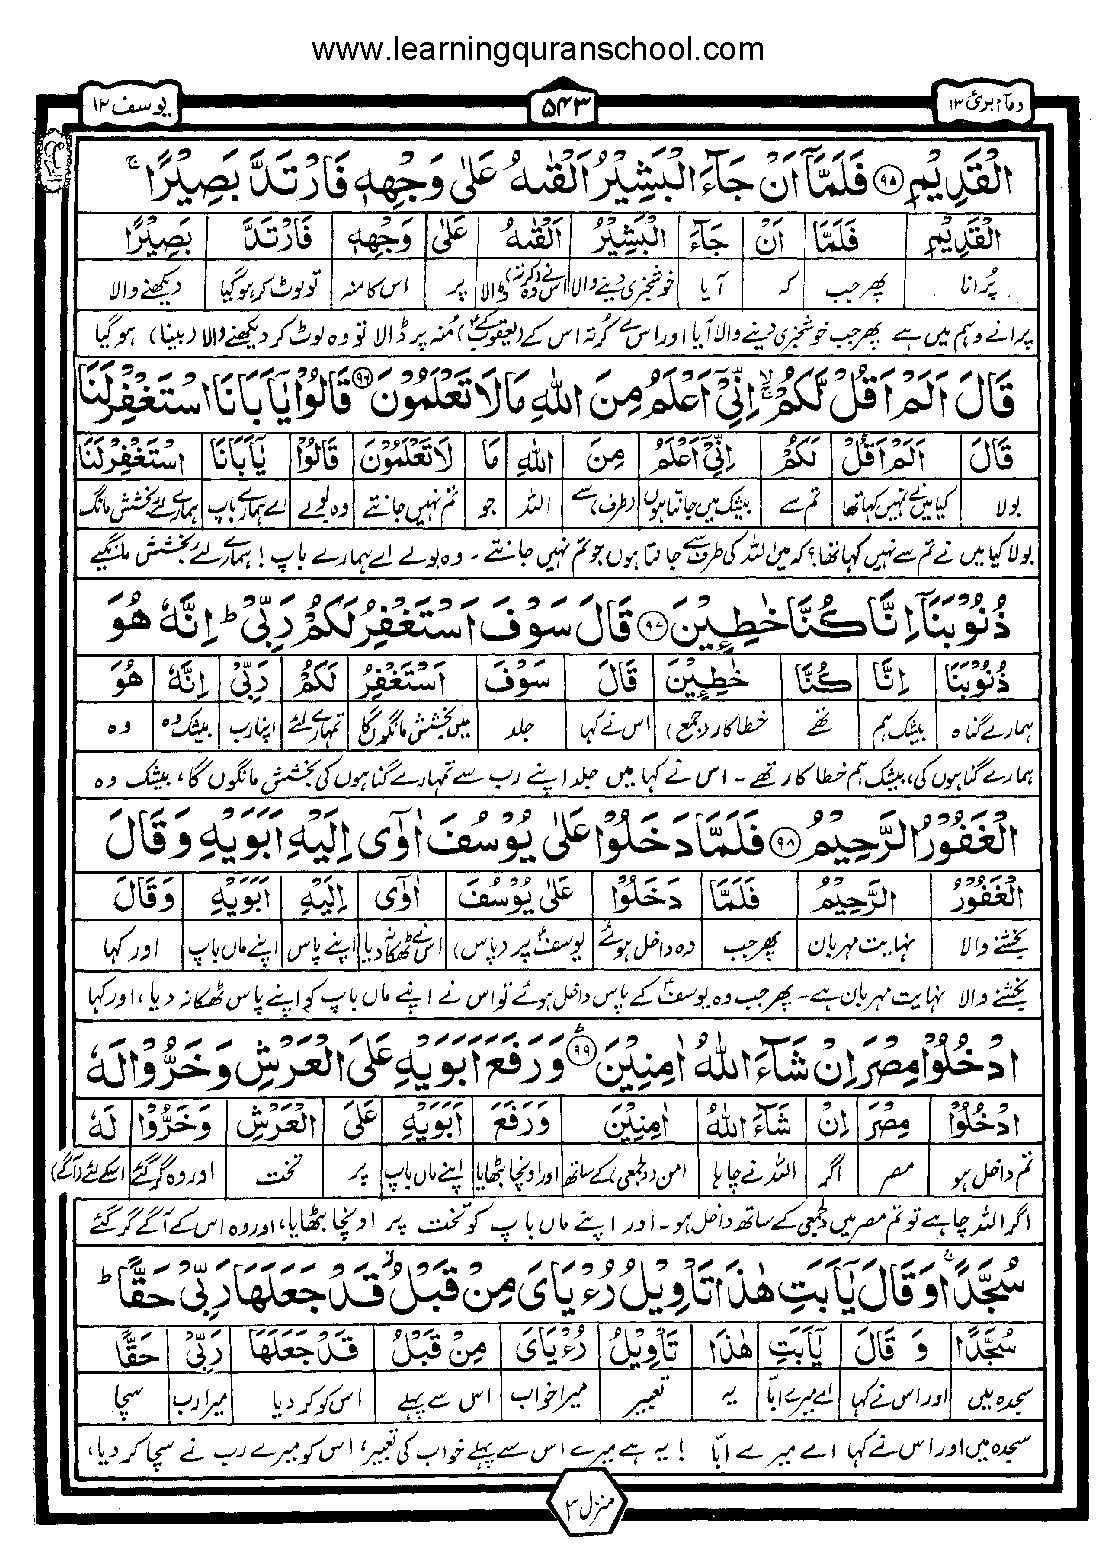 www.learningquranschool.com
ومآ ابرئ ۱۳
۵۴۳
یوسف ۱۲
الْقَدِیْمِ ۹۵ فَلَمَّاۤ اَنْ جَآءَ الْبَشِیْرُ اَلْقٰىهُ عَلٰی وَجْهِهٖ فَارْتَدَّ بَصِیْرًا ۚ
الْقَدِیْمِ فَلَمَّا اَنْ جَآءَ الْبَشِیْرُ اَلْقٰىهُ عَلٰی وَجْهِهٖ فَارْتَدَّ بَصِیْرًا
پُرانا پھر جب کہ آیا خوشخبری دینے والا اس نے وہ (کرتہ) ڈالا پر اس کا منہ تو لوٹ کر ہوگیا دیکھنے والا
پرانے وہم میں ہے پھر جب خوشخبری دینے والا آیا اور اس نے کُرتہ اس کے (یعقوبؑ کے) مُنہ پر ڈالا تو وہ لوٹ کر دیکھنے والا (بینا) ہوگیا
قَالَ اَلَمْ اَقُلْ لَّكُمْ ۙ اِنِّیْۤ اَعْلَمُ مِنَ اللّٰهِ مَا لَا تَعْلَمُوْنَ ۹۶ قَالُوْا یٰۤاَبَانَا اسْتَغْفِرْ لَنَا
قَالَ اَلَمْ اَقُلْ لَكُمْ اِنِّیْۤ اَعْلَمُ مِنَ اللّٰهِ مَا لَا تَعْلَمُوْنَ قَالُوْا یٰۤاَبَانَا اسْتَغْفِرْ لَنَا
بولا کیا میں نے نہیں کہا تھا تم سے بیشک میں جانتا ہوں (طرف) سے اللہ جو تم نہیں جانتے وہ بولے اے ہمارے باپ ہمارے لئے بخشش مانگ
بولا کیا میں نے تم سے نہیں کہا تھا؟ کہ میں اللہ کی طرف سے جانتا ہوں جو تم نہیں جانتے ۔ وہ بولے اے ہمارے باپ! ہمارے لئے بخشش مانگیے
ذُنُوْبَنَاۤ اِنَّا كُنَّا خٰطِـِٕیْنَ ۹۷ قَالَ سَوْفَ اَسْتَغْفِرُ لَكُمْ رَبِّیْ ؕ اِنَّهٗ هُوَ
ذُنُوْبَنَا اِنَّا كُنَّا خٰطِـِٕیْنَ قَالَ سَوْفَ اَسْتَغْفِرُ لَكُمْ رَبِّیْ اِنَّهٗ هُوَ
ہمارے گناہ بیشک ہم تھے خطاکار (جمع) اس نے کہا جلد میں بخشش مانگوں گا تمہارے لئے اپنا رب بیشک وہ وہ
ہمارے گناہوں کی، بیشک ہم خطا کار تھے ۔ اس نے کہا میں جلد اپنے رب سے تمہارے گناہوں کی بخشش مانگوں گا، بیشک وہ
الْغَفُوْرُ الرَّحِیْمُ ۹۸ فَلَمَّا دَخَلُوْا عَلٰی یُوْسُفَ اٰوٰۤی اِلَیْهِ اَبَوَیْهِ وَ قَالَ
الْغَفُوْرُ الرَّحِیْمُ فَلَمَّا دَخَلُوْا عَلٰی یُوْسُفَ اٰوٰۤی اِلَیْهِ اَبَوَیْهِ وَقَالَ
بخشنے والا نہایت مہربان پھر جب وہ داخل ہوئے یوسفؑ پر (پاس) اس نے ٹھکانہ دیا اپنے پاس اپنے ماں باپ اور کہا
بخشنے والا نہایت مہربان ہے۔ پھر جب وہ یوسفؑ کے پاس داخل ہوئے تو اس نے اپنے ماں باپ کو اپنے پاس ٹھکانہ دیا، اور کہا
ادْخُلُوْا مِصْرَ اِنْ شَآءَ اللّٰهُ اٰمِنِیْنَ ۹۹ؕ وَ رَفَعَ اَبَوَیْهِ عَلَی الْعَرْشِ وَ خَرُّوْا لَهٗ
ادْخُلُوْا مِصْرَ اِنْ شَآءَ اللّٰهُ اٰمِنِیْنَ وَرَفَعَ اَبَوَیْهِ عَلَی الْعَرْشِ وَخَرُّوْا لَهٗ
تم داخل ہو مصر اگر اللہ نے چاہا امن (دلجمعی) کے ساتھ اور اونچا بٹھایا اپنے ماں باپ پر تخت اور وہ گر گئے اسکے لئے (آگے)
اگر اللہ چاہے تو تم مصر میں دلجمعی کے ساتھ داخل ہو۔ اور اپنے ماں باپ کو تخت پر اونچا بٹھایا، اور وہ اس کے آگے گر گئے
سُجَّدًا ۚ وَ قَالَ یٰۤاَبَتِ هٰذَا تَاْوِیْلُ رُءْیَایَ مِنْ قَبْلُ ؗ قَدْ جَعَلَهَا رَبِّیْ حَقًّا ؕ
سُجَّدًا وَ قَالَ یٰۤاَبَتِ هٰذَا تَاْوِیْلُ رُءْیَایَ مِنْ قَبْلُ قَدْ جَعَلَهَا رَبِّیْ حَقًّا
سجدہ میں اور اس نے کہا اے میرے ابّا یہ تعبیر میرا خواب اس سے پہلے اس کو کر دیا میرا رب سچا
سجدہ میں اور اس نے کہا اے میرے ابّا ! یہ ہے میرے اس سے پہلے خواب کی تعبیر، اس کو میرے رب نے سچا کر دیا،
منزل ۳